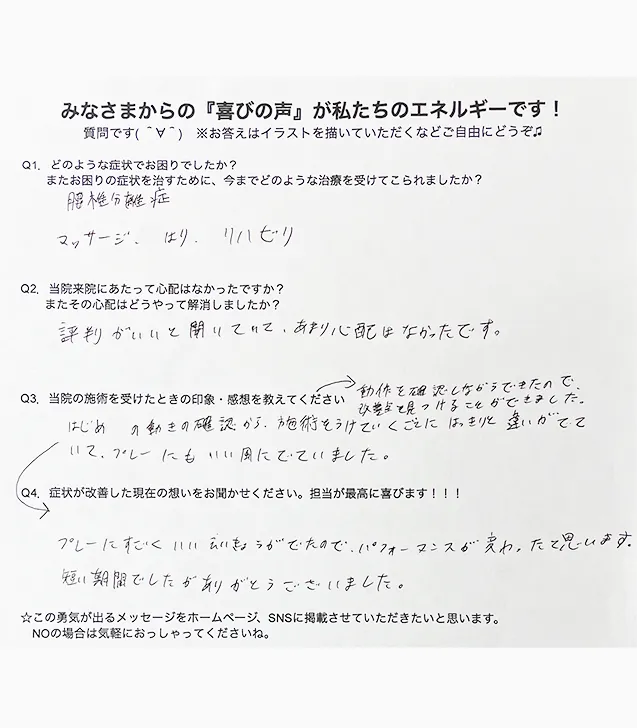 みなさまからの『喜びの声』が私たちのエネルギーです！
質問です( ＾∀＾)　※お答えはイラストを描いていただくなどご自由にどうぞ♫
Q1．どのような症状でお困りでしたか？
またお困りの症状を治すために、今までどのような治療を受けてこられましたか？
腰椎分離症
マッサージ、はり、リハビリ
Q2．当院来院にあたって心配はなかったですか？
またその心配はどうやって解消しましたか？
評判がいいと聞いていて、あまり心配はなかったです。
Q3．当院の施術を受けたときの印象・感想を教えてください
動作を確認しながらできたので、
改善点を見つけることができました。
はじめの動きの確認から、施術をうけていくごとにはっきりと違いがでて
いて、プレーにもいい風にでていました。
Q4．症状が改善した現在の想いをお聞かせください。担当が最高に喜びます！！！
プレーにすごくいいえいきょうがでたので、パフォーマンスが変わったと思います。
短い期間でしたがありがとうございました。
☆この勇気が出るメッセージをホームページ、SNSに掲載させていただきたいと思います。
NOの場合は気軽におっしゃってくださいね。